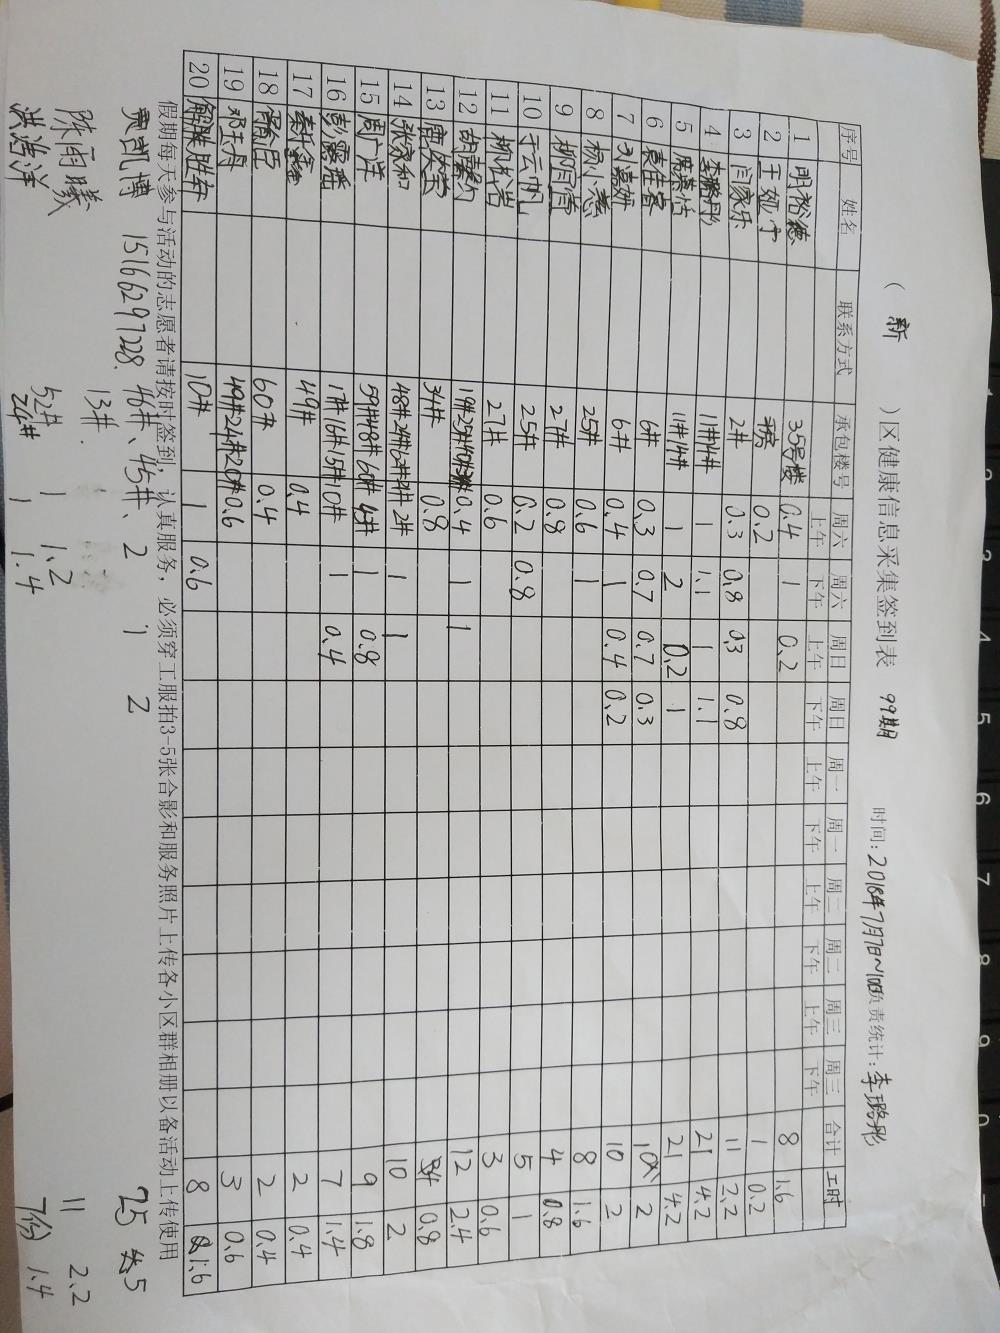 （ 新 ）区健康信息采集签到表 99期
时间：2018年7月7日~10日负责统计：李璐彤
序号 姓名 联系方式 承包楼号 周六上午 周六下午 周日上午 周日下午 周一上午 周一下午 周二上午 周二下午 周三上午 周三下午 合计 工时
1 明裕德 35号楼 0.4 1 0.2 8 1.6
2 王 0.2 1 0.2
3 闫家乐 2# 0.3 0.8 0.3 0.8 11 2.2
4 李璐彤 11#14# 1 1.1 1 1.1 21 4.2
5 11#14# 1 2 0.2 1 21 4.2
6 袁佳睿 6# 0.3 0.7 0.7 0.3 10 2
7 刘嘉妍 6# 0.4 1 0.4 0.2 10 2
8 杨小慧 25# 0.6 1 8 1.6
9 柳雪 27# 0.8 4 0.8
10 于云帆 25# 0.2 0.8 5 1
11 柳岩 27# 0.6 3 0.6
12 胡馨 19#25# 0.4 1 1 12 2.4
13 唐莹 34# 0.8 0.8
14 张永和 48#24# 2# 1 1 10 2
15 周广洋 59#48#60# 4# 1 0.8 9 1.8
16 彭露瑶 17#16#15#10# 1 0.4 7 1.4
17 秦鑫 49# 0.4 2 0.4
18 臣 60# 0.4 2 0.4
19 邓玉丹 49#24#20# 0.6 3 0.6
20 解胜军 10# 1 0.6 8 1.6
假期每天参与活动的志愿者请按时签到，认真服务，必须穿工服拍3-5张合影和服务照片上传各小区群相册以备活动上传使用
贾凯博 15166297228. 46#、45#、2 1 2 25 5
陈雨曦 13#. 1 1.2 11 2.2
洪洋 52# 24# 1 1.4 7份 1.4